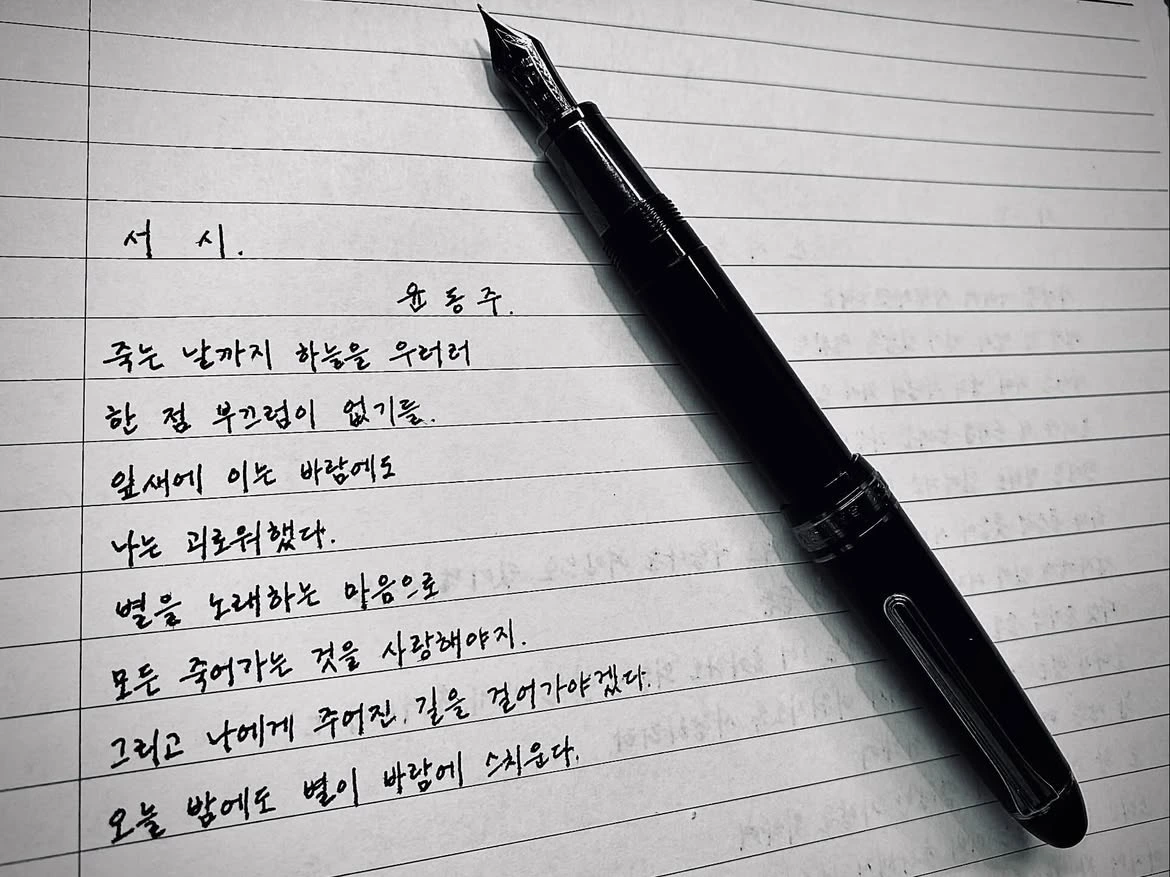 서 시.
윤동주.
죽는 날까지 하늘을 우러러
한 점 부끄럼이 없기를.
잎새에 이는 바람에도
나는 괴로워했다.
별을 노래하는 마음으로
모든 죽어가는 것을 사랑해야지.
그리고 나에게 주어진 길을 걸어가야겠다.
오늘 밤에도 별이 바람에 스치운다.